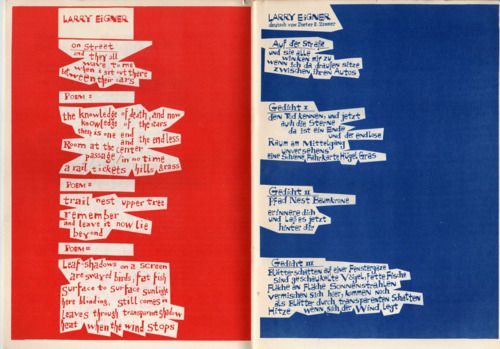 LARRY EIGNER
on street
and they all
wave to me
when i sit out there
between their cars
POEM =
the knowledge of death, and now
knowledge of the stars
there is one end
and the endless
Room at the center
passage / in no time
a rail tickets hills grass
POEM =
trail nest upper tree
remember
and leave it now lie
beyond
POEM =
Leaf-shadows on a screen
are swayed birds, fat fish
surface to surface sunlight
here blending, still comes
leaves through transparent shadow
heat when the wind stops
LARRY EIGNER
deutsch von Dieter E. Zimmer
Auf der Straße
und sie alle
winken mir zu
wenn ich da draußen sitze
zwischen ihren Autos
Gedicht I
den Tod kennen, und jetzt
auch die Sterne
da ist ein Ende
und der endlose
Raum am Mittelging
unversehens
eine Schiene Fahrkarte Hügel Gras
Gedicht II
Pfad Nest Baumkrone
erinnere dich
und laß es jetzt
hinter dir
Gedicht III
Blätterschatten auf einer Fenstergaze
sind geschaukelte Vögel, fette Fische
Fläche an Fläche Sonnenstrahlen
vermischen sich hier, kommen noch
als Blätter durch transparenten Schatten
Hitze wenn sich der Wind legt